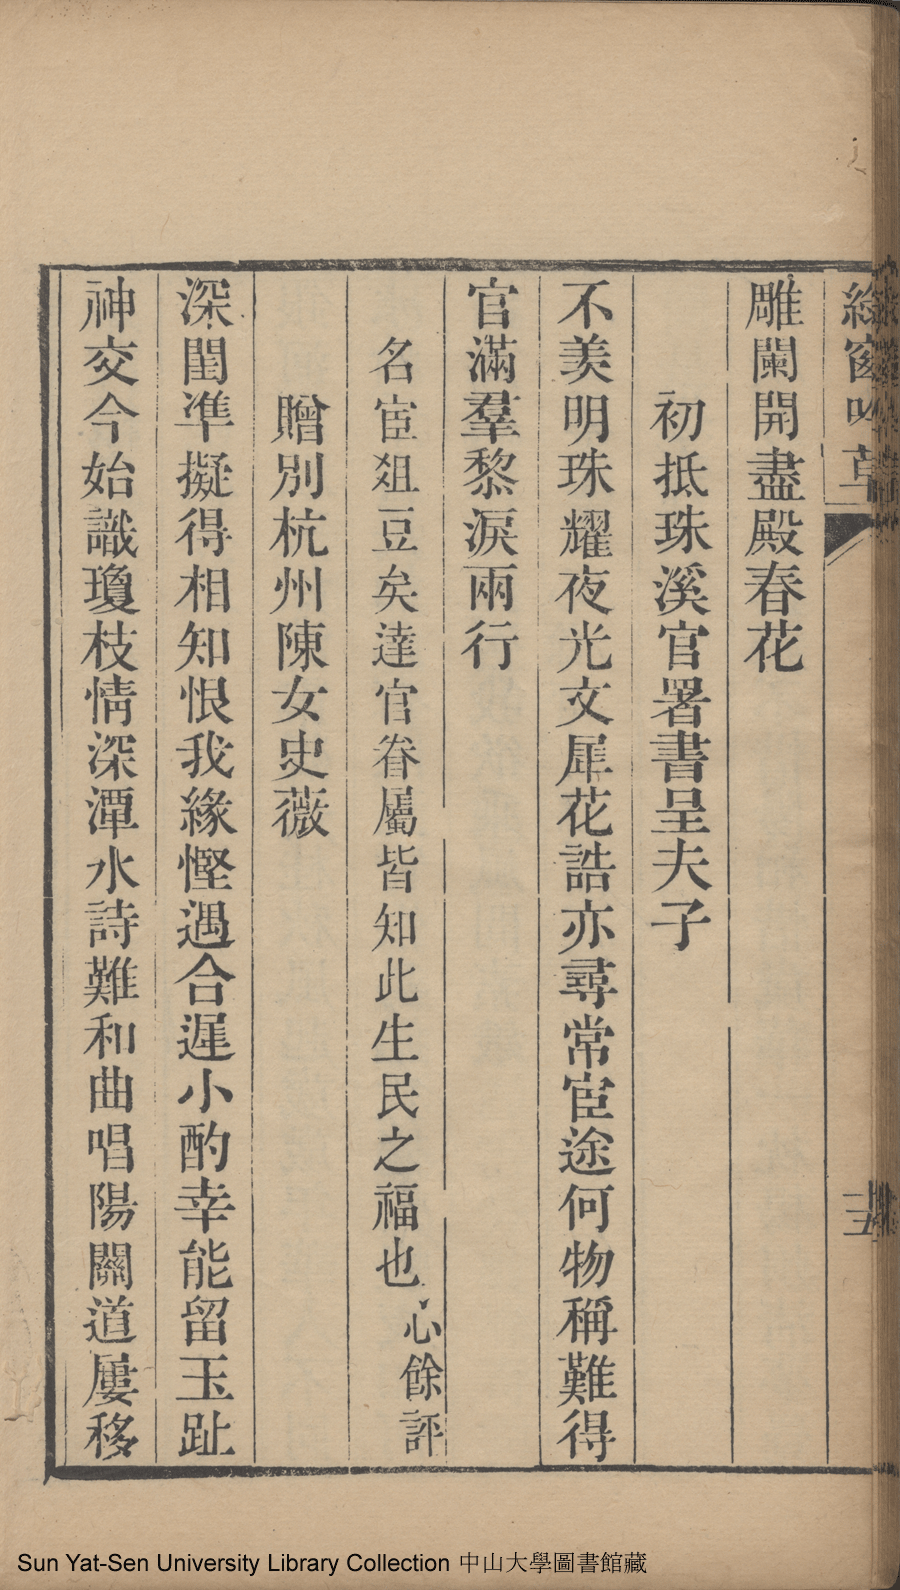 雕闌開盡殿春花
初抵珠溪官署書呈夫子
不羨明珠耀夜光文犀花誥亦尋常宦途何物稱難得
官滿羣黎淚兩行
名宦俎豆矣達官眷屬皆知此生民之福也心餘評
贈別杭州陳女史薇
深閨準擬得相知恨我緣慳遇合遲小酌幸能留玉趾
神交今始識瓊枝情深潭水詩難和曲唱陽關道屢移
Sun Yat-Sen University Library Collection 中山大學圖書館藏